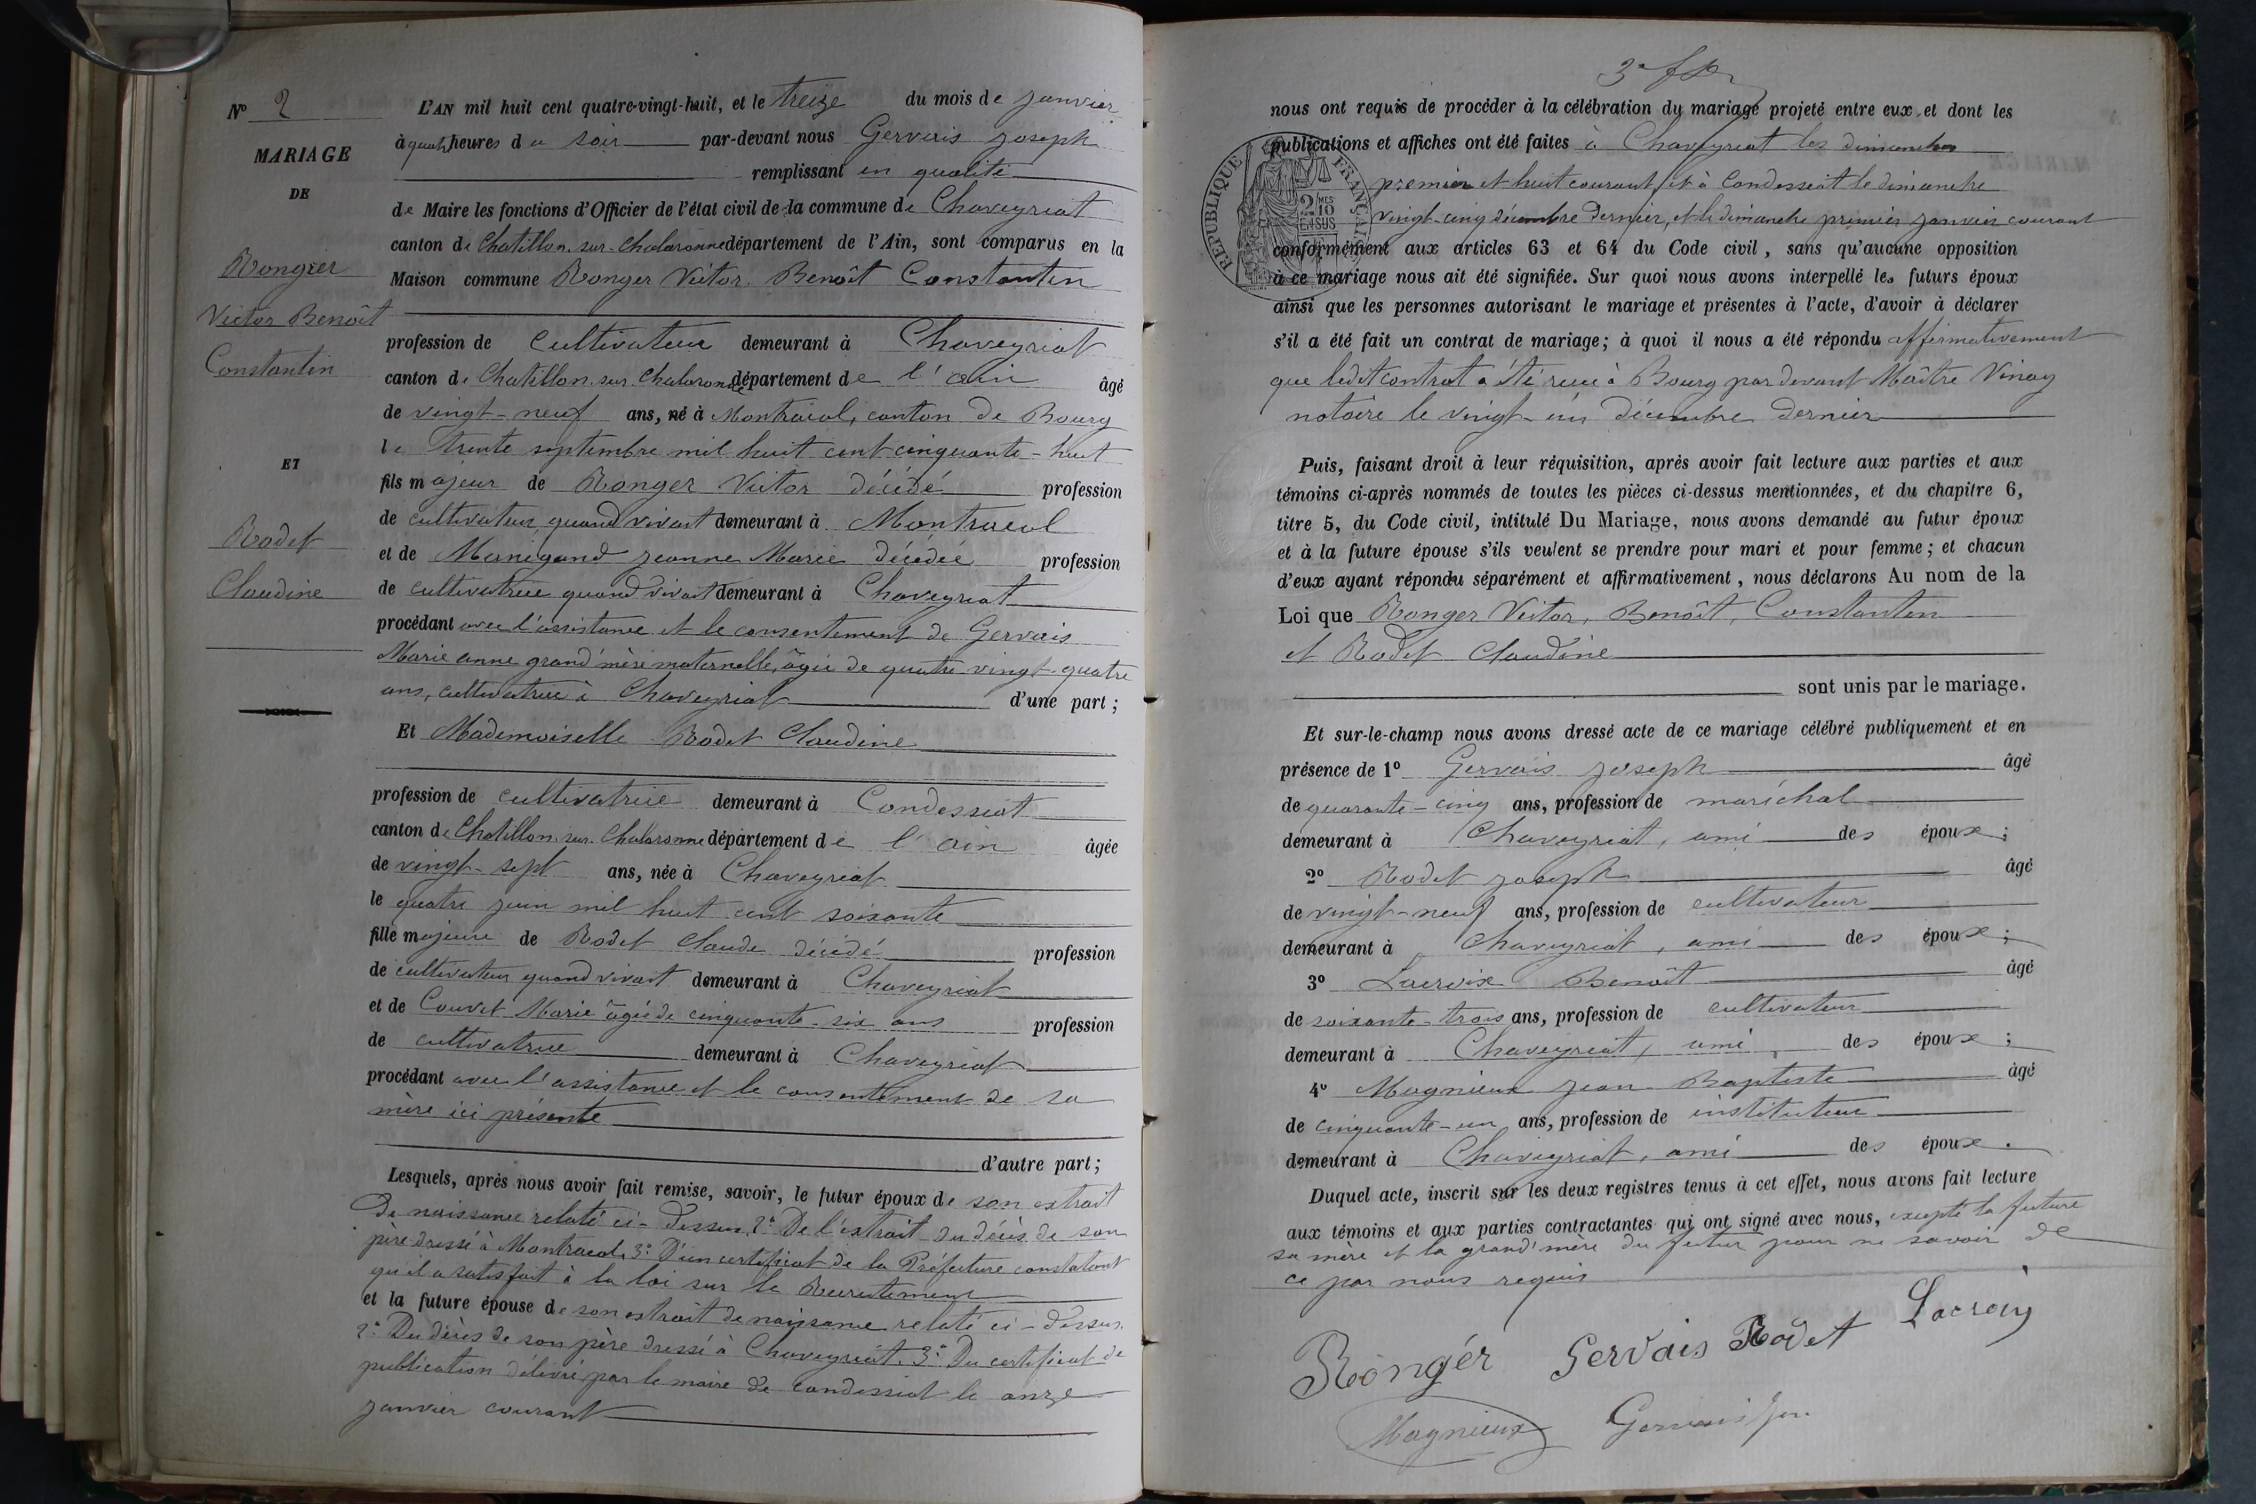 N° 2
MARIAGE
DE
Rongier
Victor Benoît
Constantin
ET
Rodet
Claudine
L'AN mil huit cent quatre-vingt-huit, et le treize du mois de janvier
à quatre heures du soir par-devant nous Gervais Joseph
remplissant en qualité
de Maire les fonctions d'Officier de l'état civil de la commune de Chaveyriat
canton de Chatillon-sur-Chalaronne département de l'Ain, sont comparus en la
Maison commune Ronger Victor, Benoît Constantin
profession de cultivateur demeurant à Chaveyriat
canton de Chatillon-sur-Chalaronne département de l'ain âgé
de vingt-neuf ans, né à Montracol, canton de Bourg
le trente septembre mil huit cent cinquante-huit
fils majeur de Ronger Victor décédé profession
de cultivateur quand vivait demeurant à Montracol
et de Manigand Jeanne Marie décédée profession
de cultivatrice quand vivait demeurant à Chaveyriat
procédant avec l'assistance et le consentement de Gervais
Marie anne grand'mère maternelle, âgée de quatre-vingt-quatre
ans, cultivatrice à Chaveyriat d'une part ;
Et Mademoiselle Rodet Claudine
profession de cultivatrice demeurant à Condessiat
canton de Chatillon-sur-Chalaronne département de l'ain âgée
de vingt-sept ans, née à Chaveyriat
le quatre juin mil huit cent soixante
fille majeure de Rodet Claude décédé profession
de cultivateur quand vivait demeurant à Chaveyriat
et de Couvet Marie âgée de cinquante-six ans profession
de cultivatrice demeurant à Chaveyriat
procédant avec l'assistance et le consentement de sa
mère ici présente
d'autre part ;
Lesquels, après nous avoir fait remise, savoir, le futur époux de son extrait
de naissance relaté ci-dessus, 2° De l'extrait du décès de son
père dressé à Montracol, 3° D'un certificat de la Préfecture constatant
qu'il a satisfait à la loi sur le Recrutement
et la future épouse de son extrait de naissance relaté ci-dessus.
2° Du décès de son père dressé à Chaveyriat. 3° Du certificat de
publication délivré par le maire de condessiat le onze
janvier courant
3e
nous ont requis de procéder à la célébration du mariage projeté entre eux, et dont les
publications et affiches ont été faites à Chaveyriat les dimanches
premier et huit courant et à Condessiat le dimanche
vingt-cinq décembre dernier, et le dimanche premier janvier courant
REPUBLIQUE FRANÇAISE
2/10 EN SUS
conformément aux articles 63 et 64 du Code civil, sans qu'aucune opposition
à ce mariage nous ait été signifiée. Sur quoi nous avons interpellé les futurs époux
ainsi que les personnes autorisant le mariage et présentes à l'acte, d'avoir à déclarer
s'il a été fait un contrat de mariage ; à quoi il nous a été répondu affirmativement
que ledit contrat a été reçu à Bourg par devant Maître Vinay
notaire le vingt-un décembre dernier
Puis, faisant droit à leur réquisition, après avoir fait lecture aux parties et aux
témoins ci-après nommés de toutes les pièces ci-dessus mentionnées, et du chapitre 6,
titre 5, du Code civil, intitulé Du Mariage, nous avons demandé au futur époux
et à la future épouse s'ils veulent se prendre pour mari et pour femme ; et chacun
d'eux ayant répondu séparément et affirmativement, nous déclarons Au nom de la
Loi que Ronger Victor, Benoît, Constantin
et Rodet Claudine
sont unis par le mariage.
Et sur-le-champ nous avons dressé acte de ce mariage célébré publiquement et en
présence de 1° Gervais Joseph âgé
de quarante-cinq ans, profession de maréchal
demeurant à Chaveyriat, ami des époux ;
2° Rodet Joseph âgé
de vingt-neuf ans, profession de cultivateur
demeurant à Chaveyriat, ami des époux ;
3° Lacroix Benoît âgé
de soixante-trois ans, profession de cultivateur
demeurant à Chaveyriat, ami des époux ;
4° Magnieux Jean-Baptiste âgé
de cinquante-un ans, profession de instituteur
demeurant à Chaveyriat, ami des époux.
Duquel acte, inscrit sur les deux registres tenus à cet effet, nous avons fait lecture
aux témoins et aux parties contractantes qui ont signé avec nous, excepté la future
sa mère et la grand'mère du futur pour ne savoir de
ce par nous requis
Rongér Gervais Rodet Lacroix
Magnieux Gervais